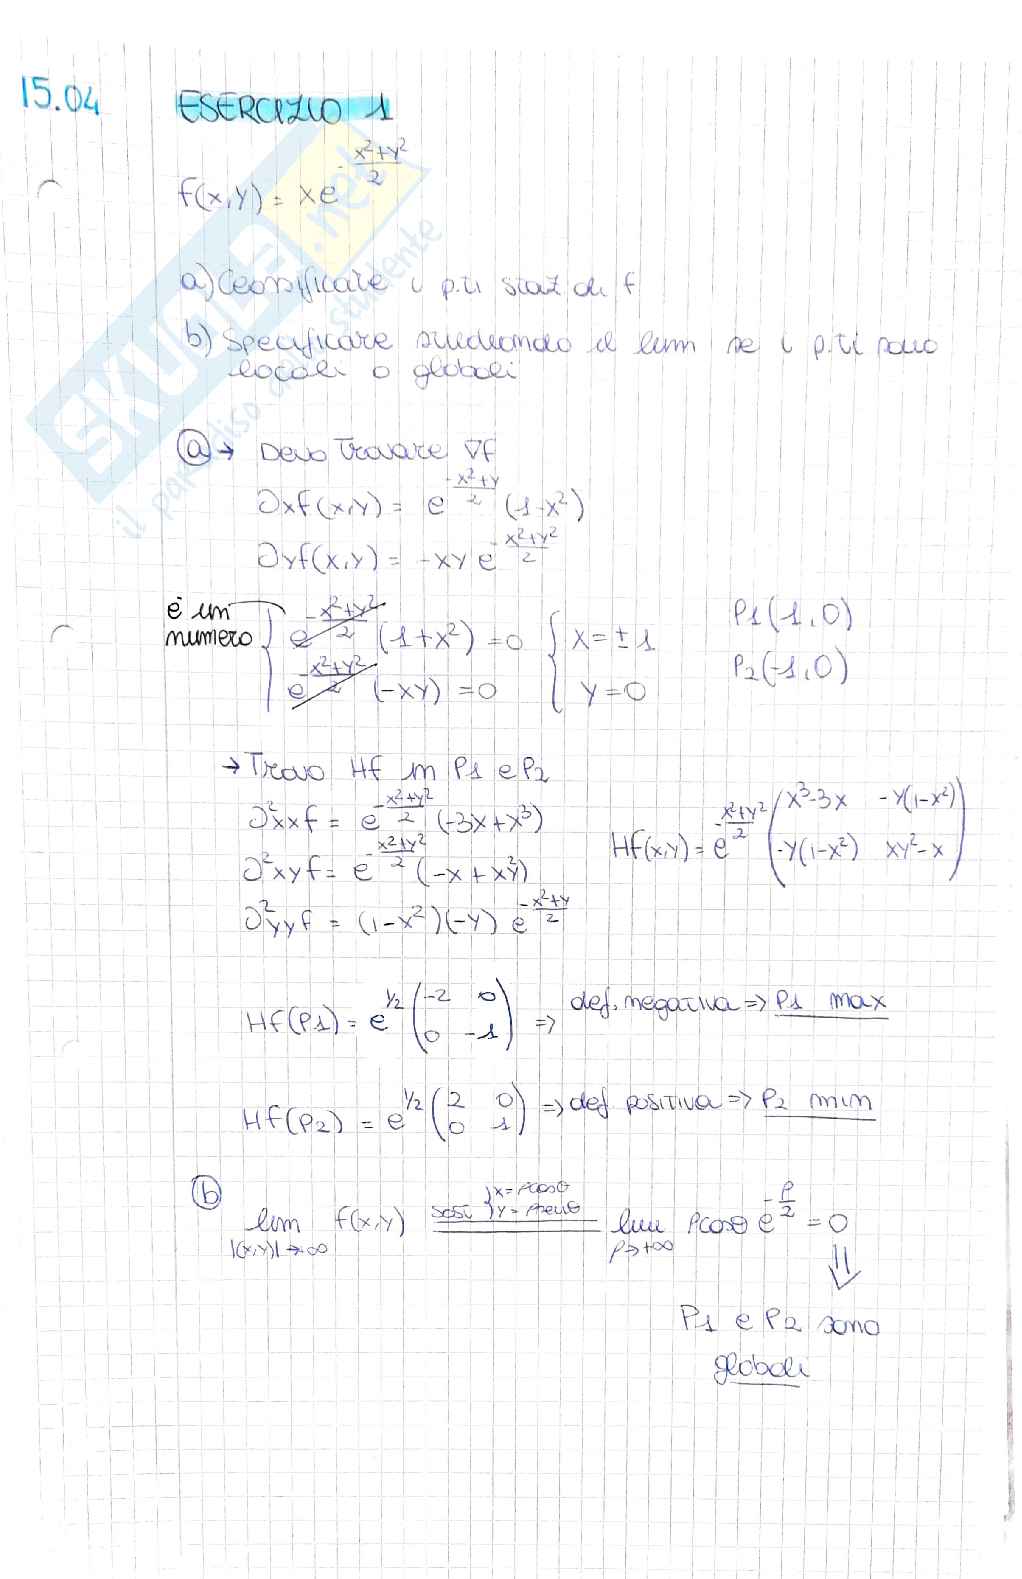 15.04 ESERCIZIO 1
f(x,y) = xe^{-\frac{x²+y²}{2}}
a) Classificare i p.ti staz di f
b) Specificare studiando il lim se i p.ti sono
locali o globali
ⓐ→ Devo trovare ∇f
∂xf(x,y) = e^{-\frac{x²+y}{2}} (1-x²)
∂yf(x,y) = -xy e^{-\frac{x²+y²}{2}}
è un numero { e^{-\frac{x²+y²}{2}} (1+x²) = 0 { x = ±1 P1(1,0)
e^{-\frac{x²+y²}{2}} (-xy) = 0 y = 0 P2(-1,0)
→ Trovo Hf in P1 e P2
∂²xxf = e^{-\frac{x²+y²}{2}} (-3x+x³)
∂²xyf = e^{-\frac{x²+y²}{2}} (-x+xy²)
∂²yyf = (1-x²)(-y) e^{-\frac{x²+y}{2}}
Hf(x,y) = e^{-\frac{x²+y²}{2}} ( x³-3x -y(1-x²)
-y(1-x²) xy²-x )
Hf(P1) = e^{1/2} ( -2 0
0 -1 ) => def. negativa => P1 max
Hf(P2) = e^{1/2} ( 2 0
0 1 ) => def positiva => P2 min
ⓑ lim_{|(x,y)|→∞} f(x,y) sost { x = ρcosθ
y = ρsenθ
lim_{ρ→+∞} ρcosθ e^{-\frac{ρ}{2}} = 0
⇓
P1 e P2 sono
globali
SKUOLA.net
il paradiso dello studente